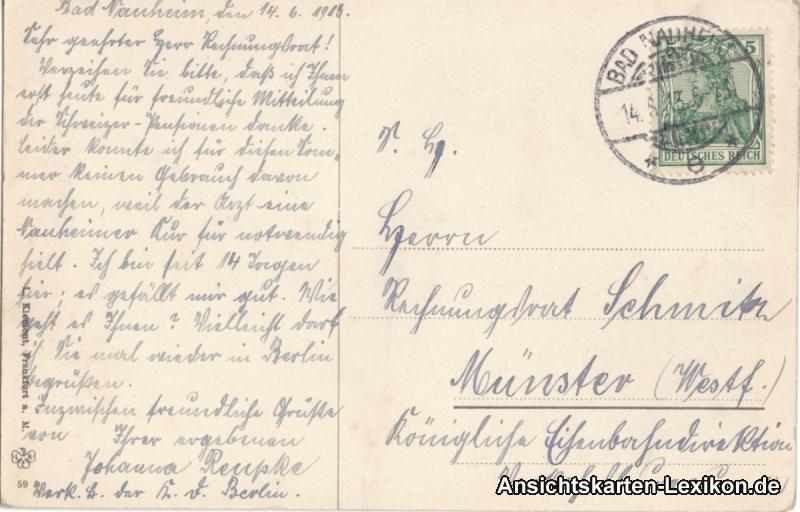 Bad Nauheim, den 14. 6. 1913.
Sehr geehrter Herr Rechnungsrat!
Verzeihen Sie bitte, daß ich Ihnen
erst heute für freundliche Mitteilung
der Schweizer-Pensionen danke.
Leider konnte ich für diesen Som-
mer keinen Gebrauch davon
machen, weil der Arzt eine
Nauheimer Kur für notwendig
hielt. Ich bin seit 14 Tagen
hier; es gefällt mir gut. Wie
geht es Ihnen? Vielleicht darf
ich Sie mal wieder in Berlin
begrüßen.
Inzwischen freundliche Grüße
von Ihrer ergebenen
Johanna
Verk. B. der K. D. Berlin.
Frankfurt a. M.
59
BAD NAUHEIM
5
DEUTSCHES REICH
S. Hg.
Herrn
Rechnungsrat Schmitz
Münster (Westf.)
Königliche Eisenbahndirektion
Ansichtskarten-Lexikon.de